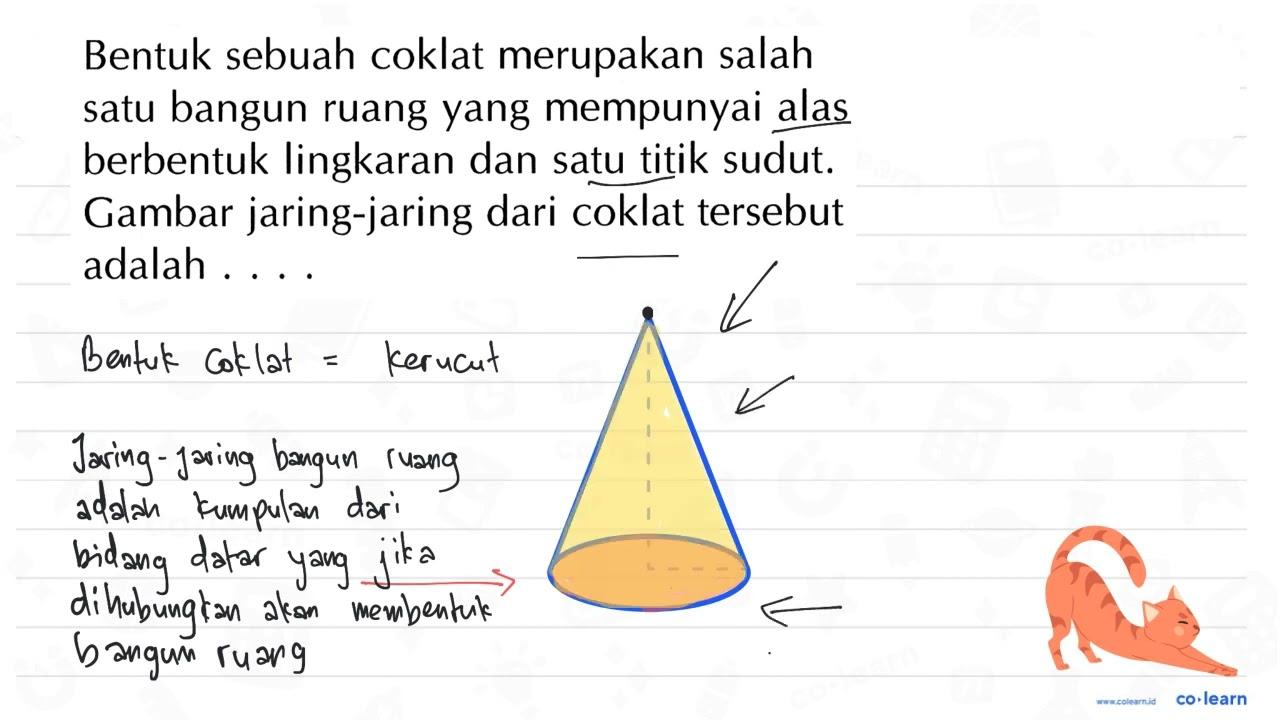 Bentuk sebuah coklat merupakan salah
satu bangun ruang yang mempunyai alas
berbentuk lingkaran dan satu titik sudut.
Gambar jaring-jaring dari coklat tersebut
adalah . . . .
Bentuk Coklat = kerucut
Jaring-jaring bangun ruang
adalah kumpulan dari
bidang datar yang jika
dihubungkan akan membentuk
bangun ruang
www.colearn.id co·learn